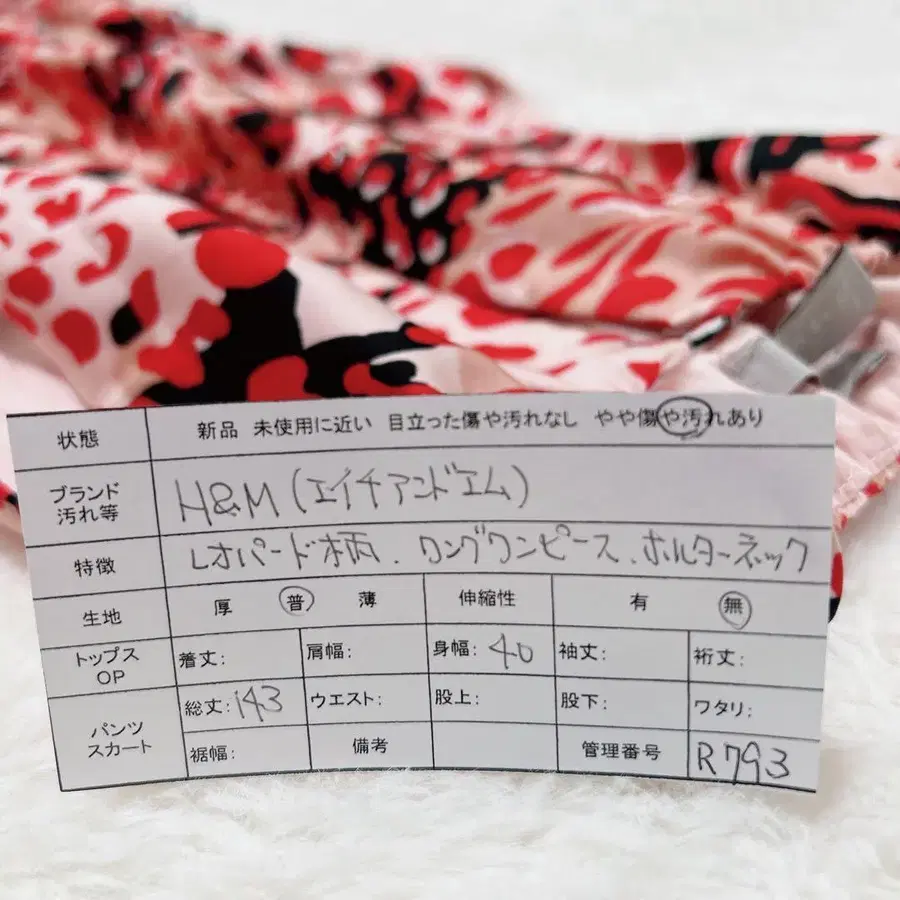 状態 新品 未使用に近い 目立った傷や汚れなし やや傷や汚れあり
ブランド
汚れ等
H&M (エイチアンドエム)
特徴 レオパード柄、ロングワンピース、ホルターネック
生地 厚 普 薄 伸縮性 有 無
トップス
OP
着丈: 肩幅: 身幅: 40 袖丈: 裄丈:
パンツ
スカート
総丈: 143 ウエスト: 股上: 股下: ワタリ:
裾幅: 備考 管理番号 R793